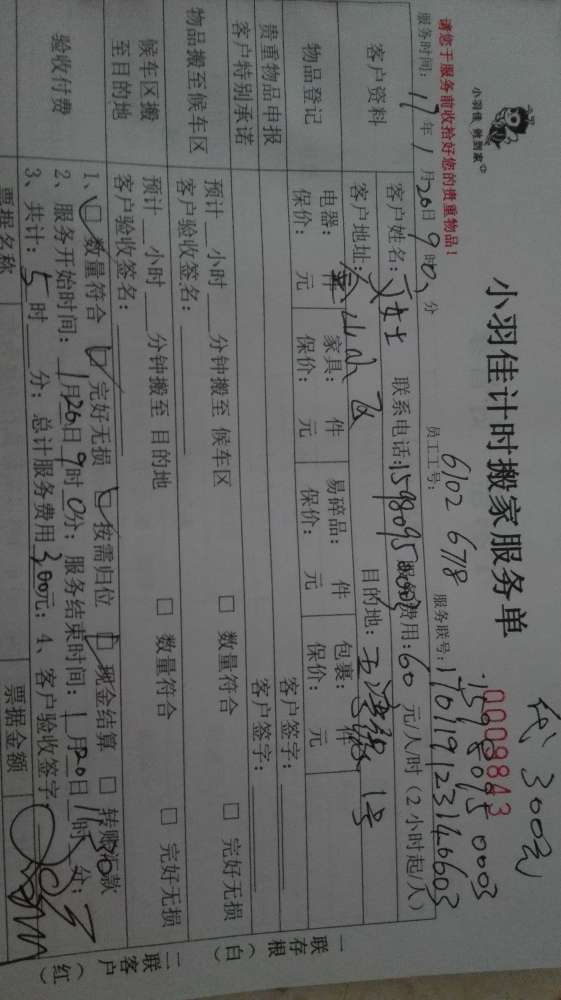 小羽佳 做到家
小羽佳计时搬家服务单
代 300元
0009843
请您于服务前收拾好您的贵重物品！
员工工号： 6102 6718 服务联号：
服务时间： 17 年 1 月 20 日 9 时 0 分
服务费用： 60 元/人/时（2小时起/人）
客户资料
客户姓名： 女士 联系电话：
客户地址： 目的地：
物品登记
电器： 件 家具： 件 易碎品： 件 包裹： 件
保价： 元 保价： 元 保价： 元 保价： 元
贵重物品申报 客户签字：
客户特别承诺 客户签字：
物品搬至候车区
预计 小时 分钟搬至 候车区 □ 数量符合 □ 完好无损
客户验收签名：
候车区搬至目的地
预计 小时 分钟搬至 目的地 □ 数量符合 □ 完好无损
客户验收签名：
验收付费
1、□ 数量符合 □ 完好无损 □ 按需归位 □ 现金结算 □ 转账汇款
2、服务开始时间： 1月20日 9时 0分；服务结束时间： 1月20日 时 分；
3、共计： 5 时 分；总计服务费用 300元；4、客户验收签字：
票据名称 票据金额
一联存根（白）
二联客户（红）